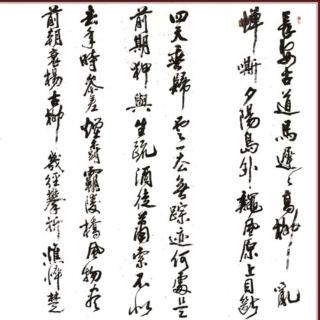 長安古道馬遲〻高柳亂
蟬嘶夕陽島外秋風原上目斷
四天垂歸雲一去無踪迹何處是
前期狎興生疏酒徒蕭索不似
去年時參差煙樹霸陵橋風物盡
前朝衰楊古柳幾經攀折憔悴楚